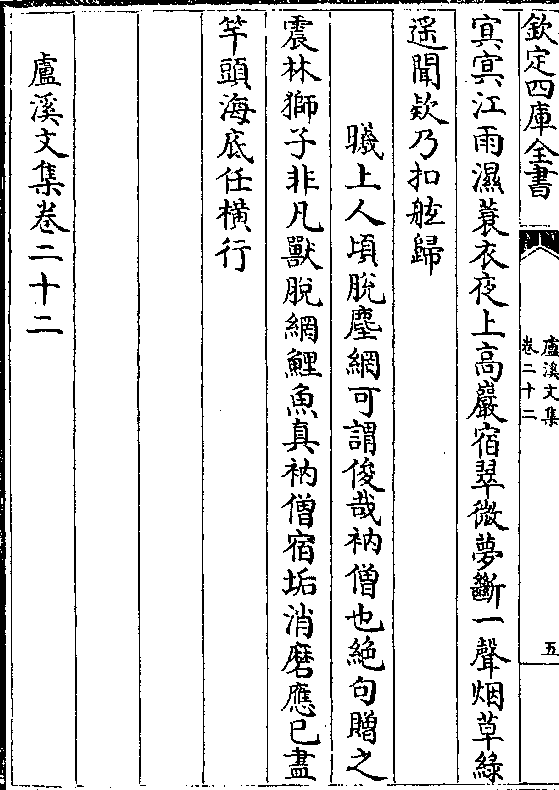 欽定四庫全書
盧溪文集
卷二十二
五
寘寘江雨濕蓑衣夜上高巖宿翠微夢斷一聲烟草綠
遥聞欵乃扣舷歸
曦上人頃脫塵網可謂俊哉衲僧也絶句贈之
震林獅子非凡獸脫網鯉魚真衲僧宿垢消磨應已盡
竿頭海底任横行
盧溪文集卷二十二